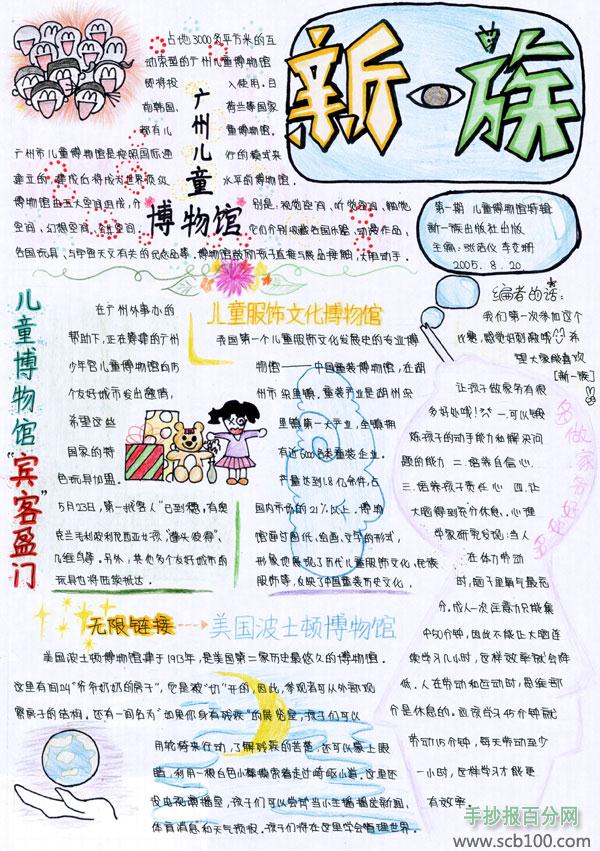 新一族
占地3000多平方米的互
动类型的广州儿童博物馆
即将投入使用。日
荷兰等国家
都有儿童博物馆。
广州市儿童博物馆是按照国际通行的模式来
建立的,建成后将成为世界顶级水平的博物馆。
别是:视觉空间、听觉空间、触觉
空间、幻想空间、
各国玩具、与宇宙天文有关的纪念品等。
广州儿童
博物馆
第一期 儿童博物馆特辑
新一族出版社出版
主编:
2005.8.20.
编者的话:
我们第一次参加这个
希
望大家能喜欢
[新一族]
儿童博物馆
"宾客盈门"
在广州外事办的
帮助下,正在筹建的广州
少年宫儿童博物馆向历
个友好城市发出邀请,
希望这些
国家的特
色玩具加盟。
5月23日,第一批"客人"已到穗,有奥
克兰毛利波利尼西亚女孩、
另外,其他多个友好城市的
玩具也将陆续抵达。
儿童服饰文化博物馆
我国第一个儿童服饰文化发展史的专业博
物馆——中国童装博物馆,在湖
州市织里镇。童装产业是湖州织
里镇第一大产业,全镇拥
有近5000多名童装企业。
产量达到1.8亿件,占
国内市场的21%以上。博物
馆通过图纸,绘画,文字的形式,
形象地展现了历代儿童服饰文化,民族
服饰等,反映了中国童装历史文化。
让孩子做家务有很
多好处哦!一.可以锻
炼孩子的动手能力和解决问
题的能力 二.培养自信心.
三.培养孩子责任心 四.让
大脑得到充分休息。心理
学家研究发现:当人
在体力劳动
时,脑子里氧气最充
分,成人一次注意力只能集
中50分钟,因此不能让大脑连
续学习几小时,这样效率就会降
低。人在劳动和运动时,思维部
分是休息的。应该学习45分钟就
劳动15分钟,每天劳动至少
一小时,这样学习才能更
有效率。
多做家务好处多
无限链接
美国波士顿博物馆
美国波士顿博物馆建于1913年,是美国第二家历史最悠久的博物馆。
这里有间叫"爷爷奶奶的房子",它是被"切"开的,因此,参观者可从外部观
察房子的结构。还有一间名为"如果你身有残疾"的展览室,孩子们可以
用轮椅来行动,了解残疾的苦楚,还可以蒙上眼
睛,利用一根白色小棒摸索着走过崎岖小道。这里还
设电视演播室,孩子们可以尝试当小主播播发新闻,
体育消息和天气预报。孩子们将在这里学会管理世界。
手抄报百分网
www.scb100.com